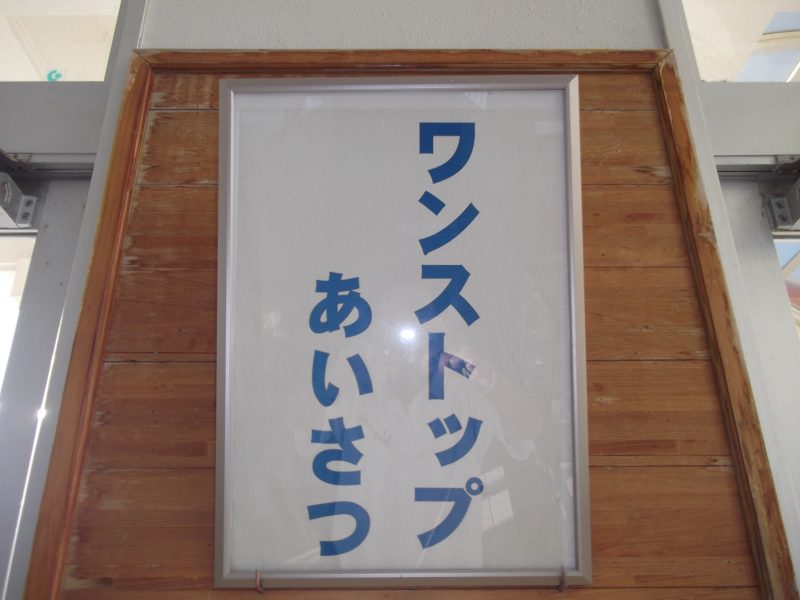 ワンストップ
あいさつ